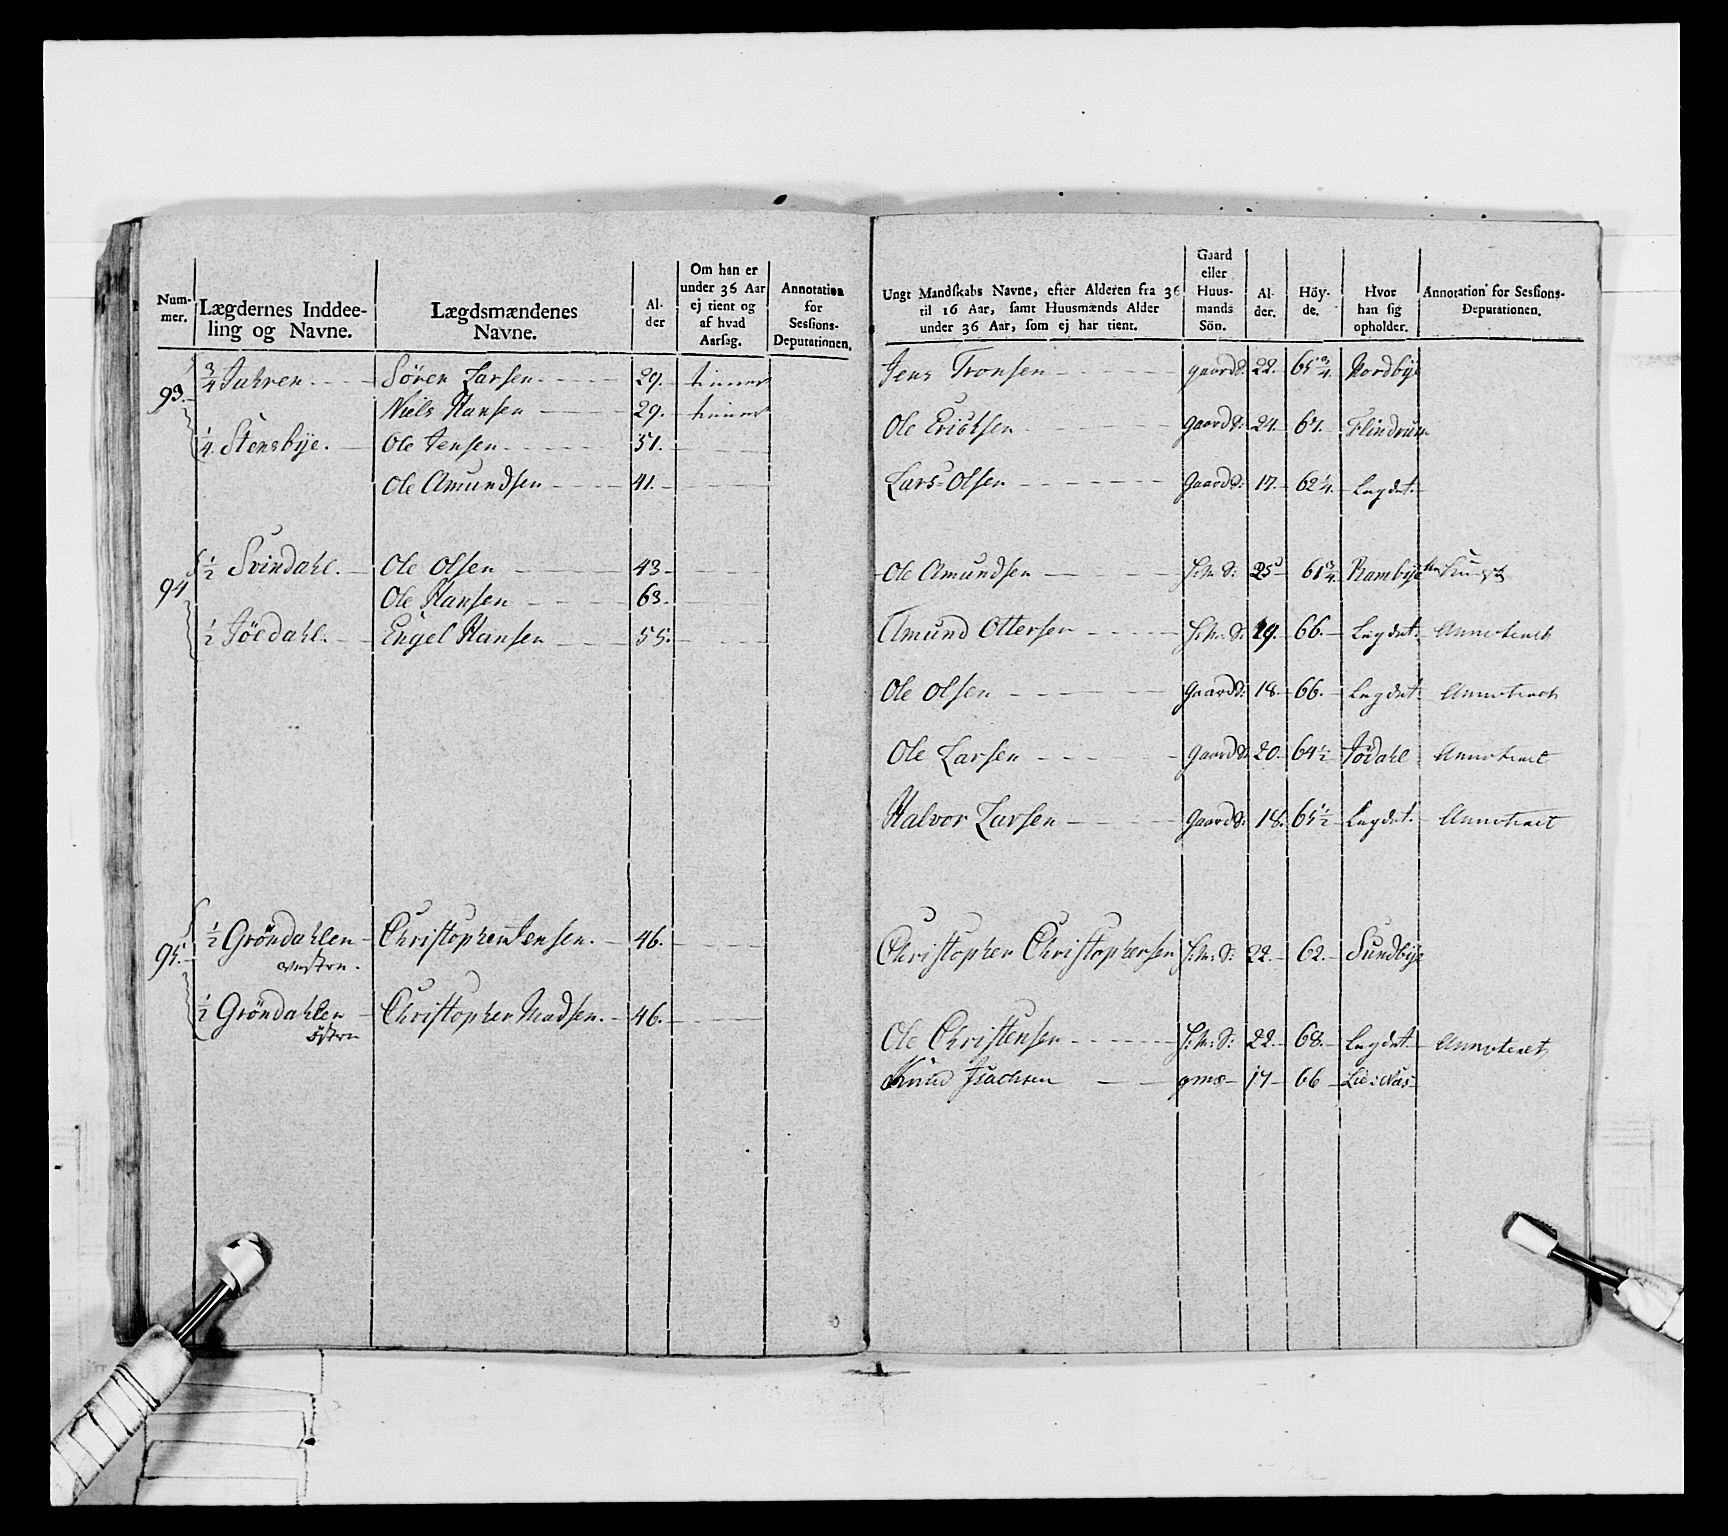 Num-
mer.
Lægdernes Inddee-
ling og Navne.
Lægdsmændenes
Navne.
Al-
der
Om han er
under 36 Aar
ej tient og
af hvad
Aarsag.
Annotation
for
Sessions-
Deputationen.
93. 3/4 Jahren. Sören Larsen 29.
Niels Hansen 29.
1/4 Stensbye. Ole Jensen 51.
Ole Amundsen 41.
94 1/2 Svindahl. Ole Olsen 43
Ole Hansen 63.
1/2 Jöedahl. Engel Hansen 55.
95. 1/2 Gröndahlen Christopher Jensen. 46.
vestre.
1/2 Gröndahlen Christopher Madsen. 46.
östre
Ungt Mandskabs Navne, efter Alderen fra 36
til 16 Aar, samt Huusmænds Alder
under 36 Aar, som ej har tient.
Gaard
eller
Huus-
mands
Sön.
Al-
der.
Höy-
de.
Hvor
han sig
opholder.
Annotation for Sessions-
Deputationen.
Jens Tronsen gaardS. 22. 65 3/4. Nordbye
Ole Ericksen GaardS. 24. 61. Flindrum
Lars Olsen GaardS. 17. 62 1/4. Lægdet.
Ole Amundsen H:m: S: 25 61 3/4. Rambye
Amund Ottersen H:m: S: 19. 66. Lægdet. Annoteret
Ole Olsen GaardS. 18. 66. Lægdet. Annoteret
Ole Larsen GaardS. 20. 64 1/2 Jödahl Annoteret
Halvor Larsen GaardS. 18. 65 1/2 Lægdet. Annoteret
Christopher Christophersen H:m: S: 22. 62. Sundbye
Ole Christensen H:m: S: 22. 68. Lægdet. Annoteret
Knud Isachsen 17 66